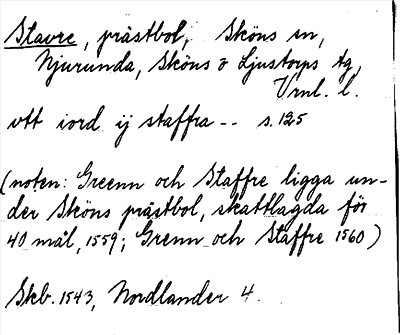 Stavre, prästbol, Sköns sn,
Njurunda, Sköns o Ljustorps tg,
Vrnl. l.
vtt iord ij staffra -- s. 125
(noten: Greenn och Staffre ligga un-
der Sköns prästbol, skattlagda för
40 mål, 1559; Grenn och Staffre 1560)
Skb. 1543, Nordlander 4.